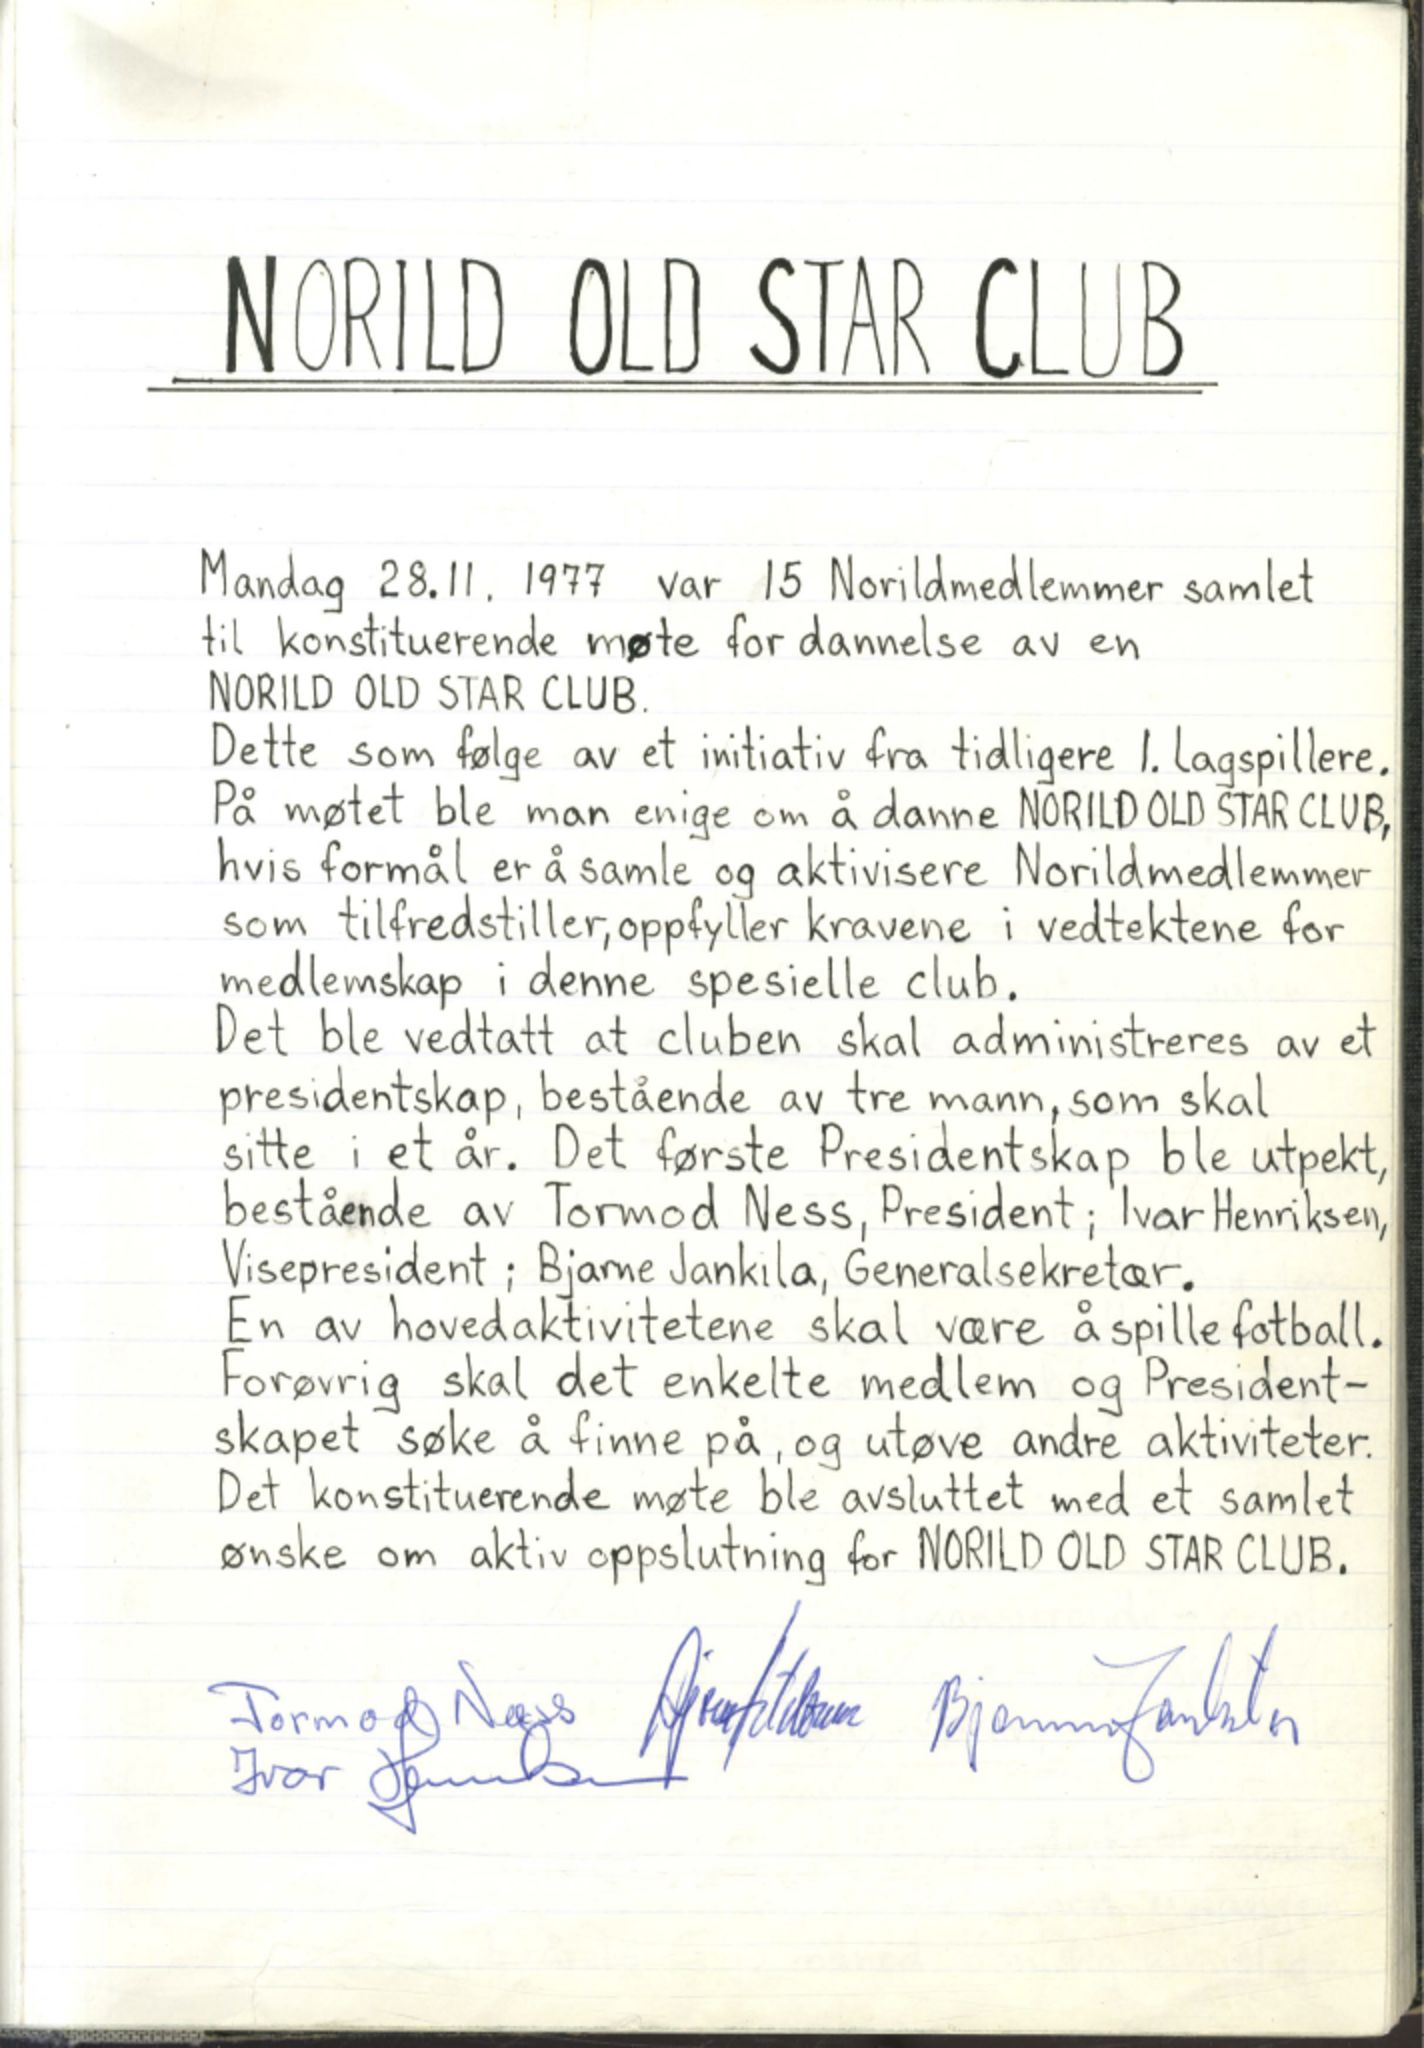 NORILD OLD STAR CLUB
Mandag 28.11. 1977 var 15 Norildmedlemmer samlet
til konstituerende møte for dannelse av en
NORILD OLD STAR CLUB.
Dette som følge av et initiativ fra tidligere 1. lagspillere.
På møtet ble man enige om å danne NORILD OLD STAR CLUB,
hvis formål er å samle og aktivisere Norildmedlemmer
som tilfredstiller, oppfyller kravene i vedtektene for
medlemskap i denne spesielle club.
Det ble vedtatt at cluben skal administreres av et
presidentskap, bestående av tre mann, som skal
sitte i et år. Det første Presidentskap ble utpekt,
bestående av Tormod Ness, President; Ivar Henriksen,
Visepresident; Bjarne Jankila, Generalsekretær.
En av hovedaktivitetene skal være å spille fotball.
Forøvrig skal det enkelte medlem og President-
skapet søke å finne på, og utøve andre aktiviteter.
Det konstituerende møte ble avsluttet med et samlet
ønske om aktiv oppslutning for NORILD OLD STAR CLUB.
Tormod Næss Bjarne Jankila
Ivar Henriksen